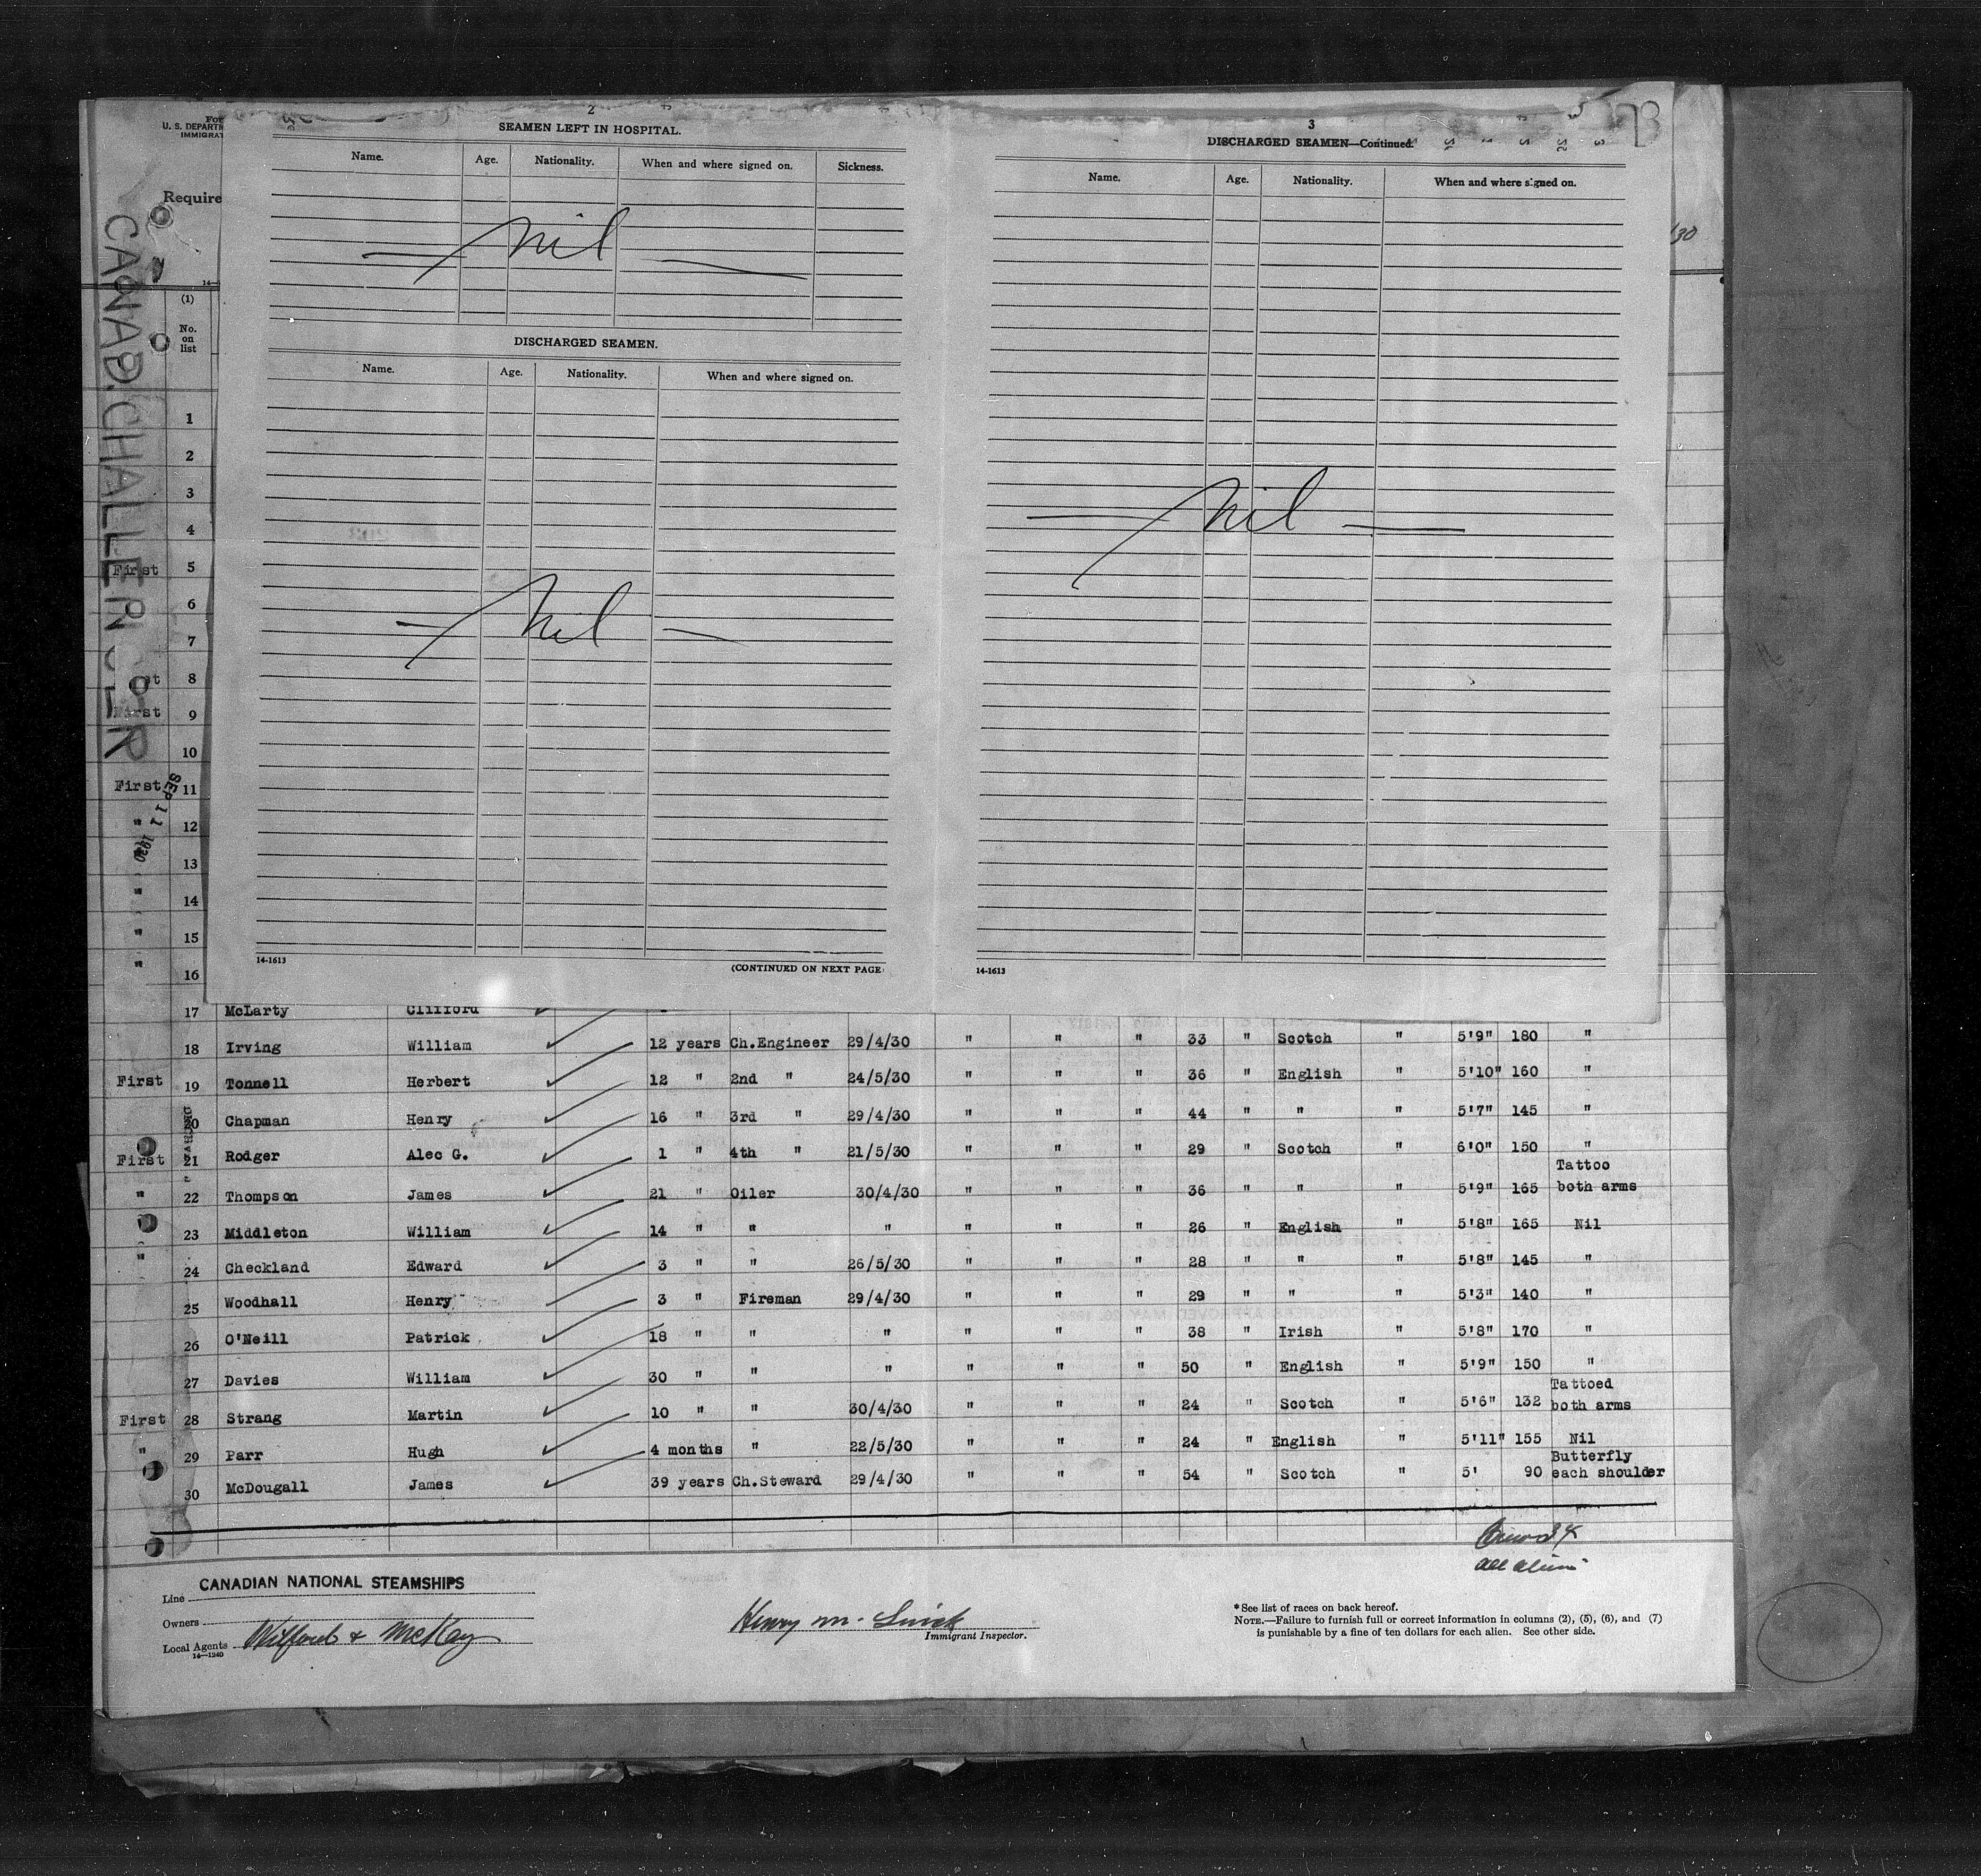 2
SEAMEN LEFT IN HOSPITAL.
Name. Age. Nationality. When and where signed on. Sickness.
nil
DISCHARGED SEAMEN.
Name. Age. Nationality. When and where signed on.
nil
14-1613
(CONTINUED ON NEXT PAGE
3
DISCHARGED SEAMEN—Continued.
Name. Age. Nationality. When and where signed on.
nil
14-1613
U. S. DEPARTM
IMMIGRAT
Require
130
CANAD. CHALLENGER
SEP 11 1930
(1)
No.
on
list
1
2
3
4
First 5
6
7
8
First 9
10
First 11
" 12
" 13
" 14
" 15
" 16
17 McLarty Clifford
18 Irving William 12 years Ch.Engineer 29/4/30 " " " 33 " Scotch " 5'9" 180 "
First 19 Tonnell Herbert 12 " 2nd " 24/5/30 " " " 36 " English " 5'10" 160 "
20 Chapman Henry 16 " 3rd " 29/4/30 " " " 44 " " " 5'7" 145 "
First 21 Rodger Alec G. 1 " 4th " 21/5/30 " " " 29 " Scotch " 6'0" 150 "
" 22 Thompson James 21 " Oiler 30/4/30 " " " 36 " " " 5'9" 165 Tattoo both arms
23 Middleton William 14 " " " " " " 26 " English " 5'8" 165 Nil
" 24 Checkland Edward 3 " " 26/5/30 " " " 28 " " " 5'8" 145 "
25 Woodhall Henry 3 " Fireman 29/4/30 " " " 29 " " " 5'3" 140 "
26 O'Neill Patrick 18 " " " " " " 38 " Irish " 5'8" 170 "
27 Davies William 30 " " " " " " 50 " English " 5'9" 150 "
First 28 Strang Martin 10 " " 30/4/30 " " " 24 " Scotch " 5'6" 132 Tattoed both arms
" 29 Parr Hugh 4 months " 22/5/30 " " " 24 " English " 5'11" 155 Nil
30 McDougall James 39 years Ch.Steward 29/4/30 " " " 54 " Scotch " 5' 90 Butterfly each shoulder
Crew 34
all alien
Line CANADIAN NATIONAL STEAMSHIPS
Owners
Local Agents Wilfords & McKay
14—1240
Henry M.
Immigrant Inspector.
*See list of races on back hereof.
NOTE.—Failure to furnish full or correct information in columns (2), (5), (6), and (7)
is punishable by a fine of ten dollars for each alien. See other side.